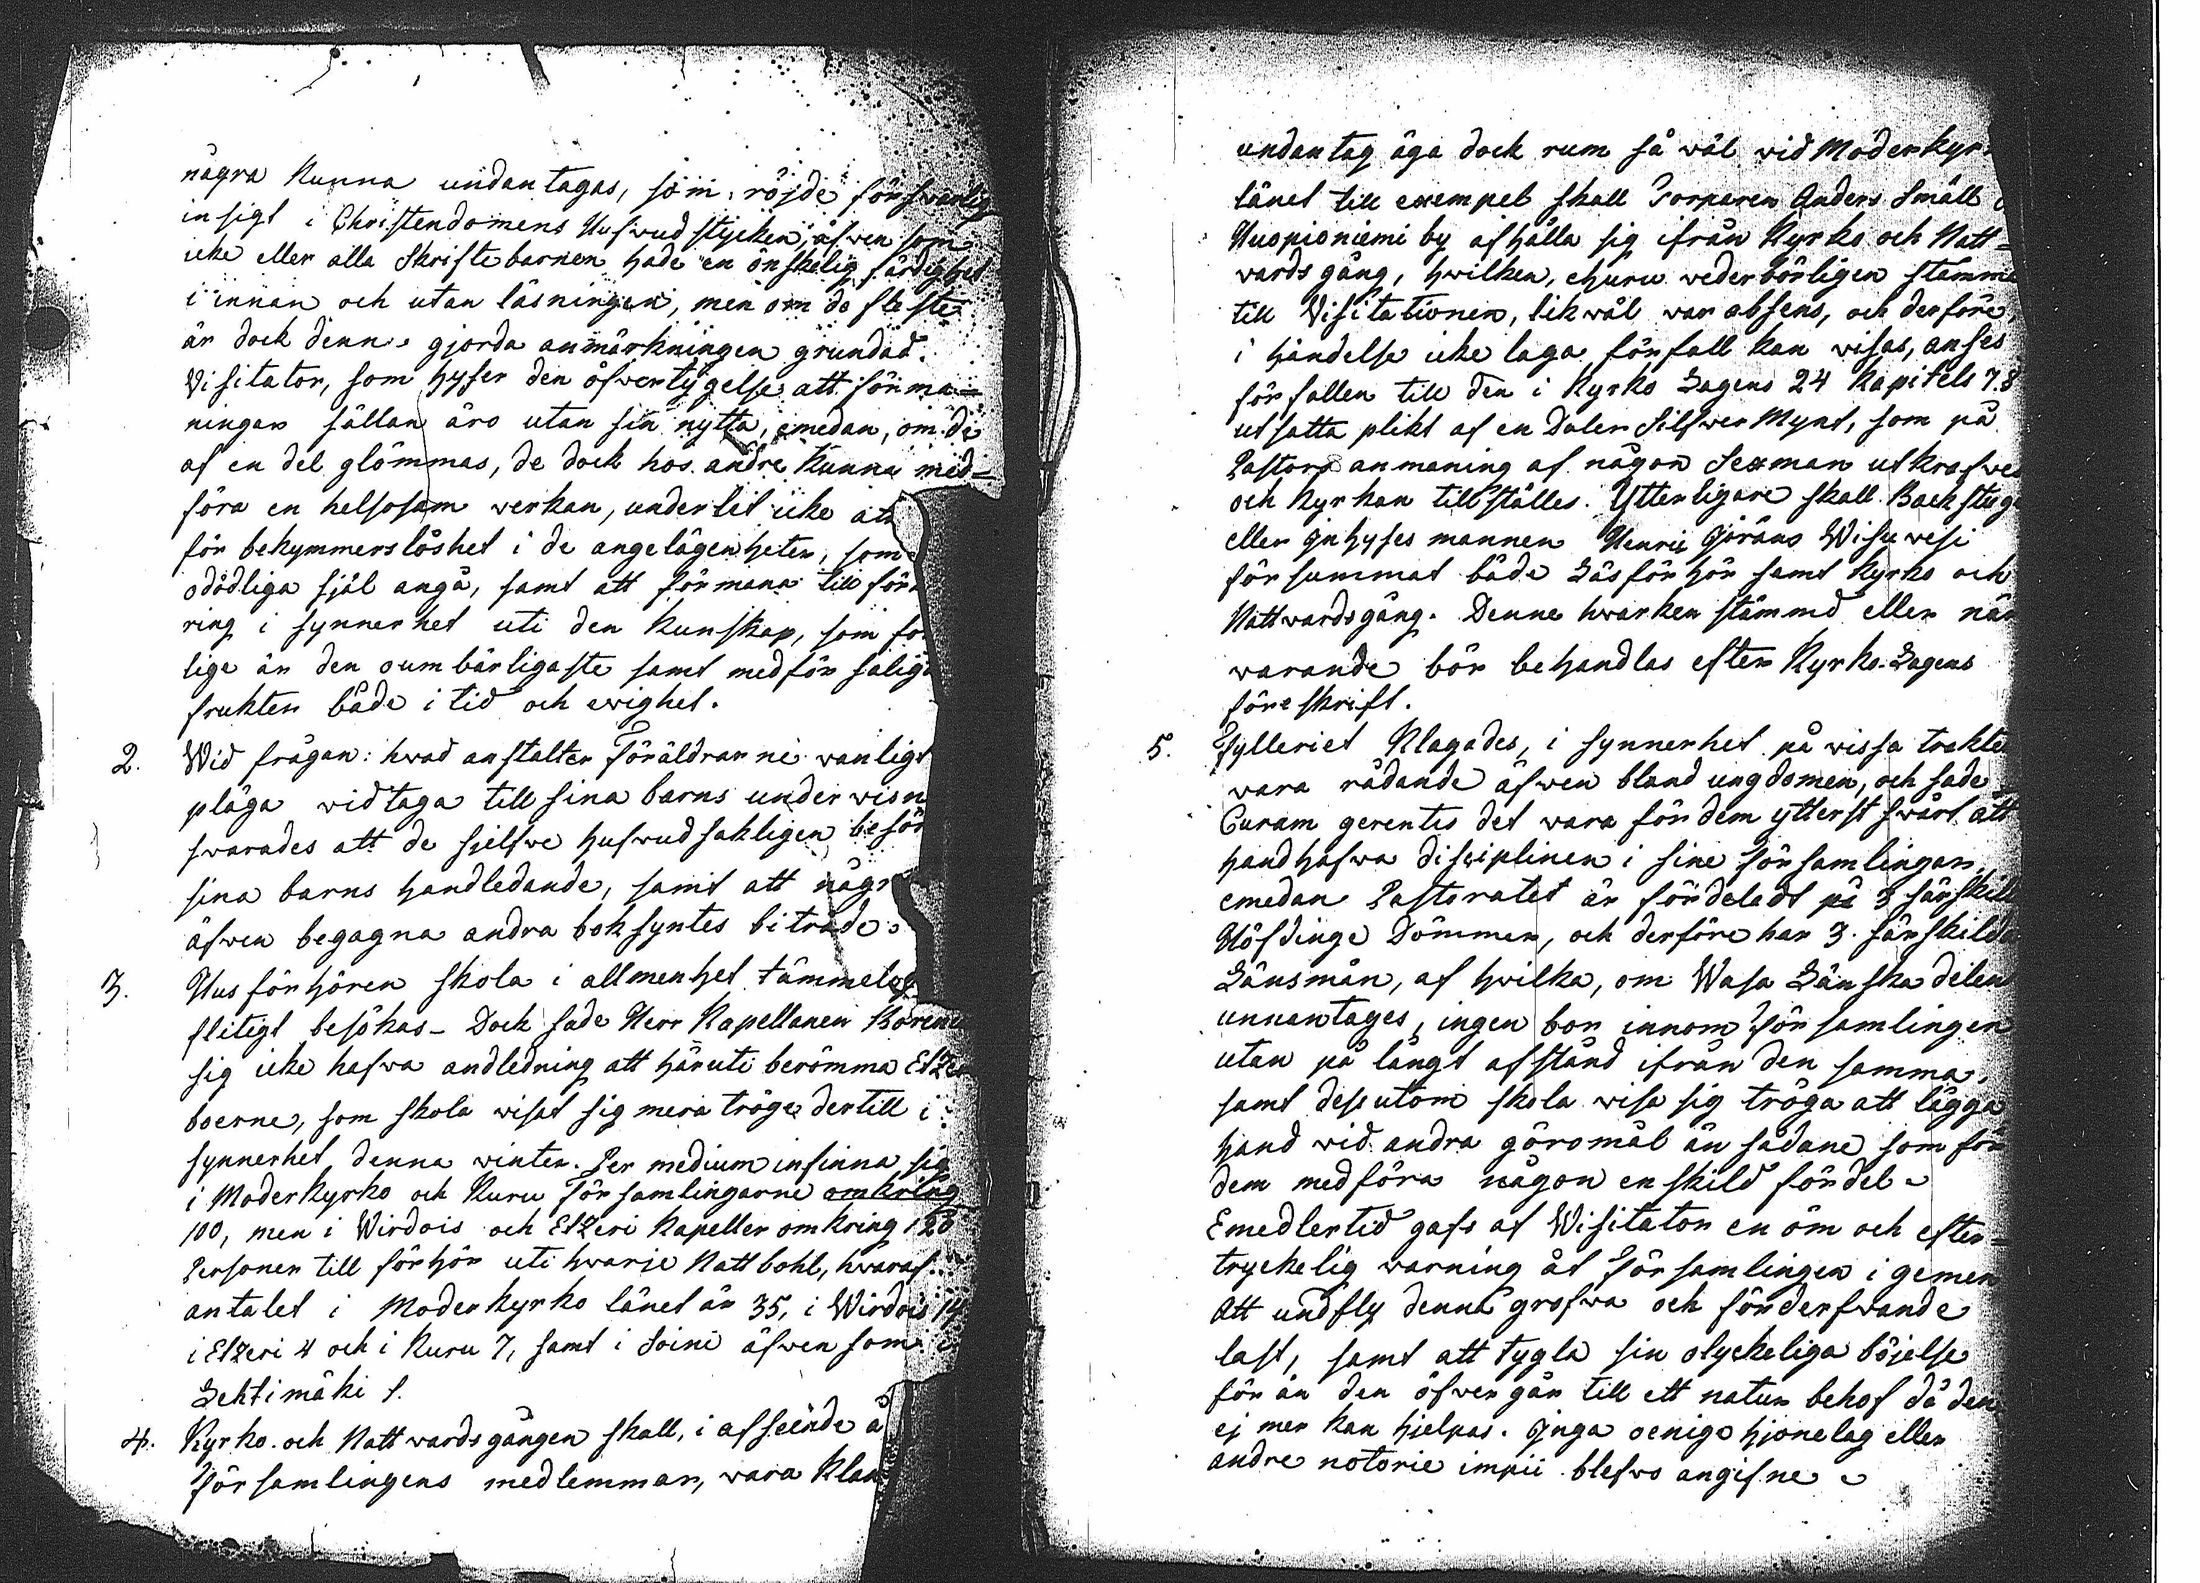 några kunna undantagas, som röjde förswarlig
insigt i Christendomens Hufwudstycken, äfwen som
icke eller alla Skriftebarnen hade en önskelig färdighet
i innan och utan läsningen, men om de fleste
är dock denna gjorda anmärkningen grundad.
Visitator, som hyser den öfwertygelse att förma-
ningar sällan äro utan sin nytta, emedan, om de
af en del glömmas, de dock hos andre kunna med-
föra en helsosam verkan, underlet icke att
för bekymmerslöshet i de angelägenheter, som
odödliga själ angå, samt att förmana till för
ring i synnerhet uti den kunskap, som för
lige är den oumbärligaste samt medför salig
frukter både i tid och ewighet.
2. Wid frågan: hwad anstalter Föräldrarne wanligt
pläga widtaga till sina barns underwisn
swarades att de sjelfwe hufwudsakligen besör
sina barns handledande, samt att någr
äfwen begagna andra boksyntes biträde.
3. Husförhören skola i allmenhet tämmelig
flitigt besökas - Dock sade Herr Kapellanen Boren
sig icke hafwa andledning att häruti berömma Etzeri
boerne, som skola wisat sig mera tröge dertill i
synnerhet denna winter. Per medium infinna sig
i Moderkyrko och Kuru Församlingarne omkring
100, men i Wirdois och Etzeri Kapeller omkring 120
Personer till förhör uti hwarje Nattbohl, hwaraf
antalet i Moderkyrko länet är 35, i Wirdois 14
i Etzeri 4 och i Kuru 7, samt i Soini äfwen som i
Lehtimäki 1.
4. Kyrko- och Nattwardsgången skall, i afseende å
Församlingens medlemmar, wara klan
undantag äga dock rum så wäl wid Moderkyr
länet till exempel skall Torparen Anders Småll
Huopioniemi by afhålla sig ifrån Kyrko och Natt-
wards gång, hwilken, ehuru wederbörligen stämme
till Visitationen, likwäl war absens, och derföre
i händelse icke laga förfall kan wisas, anses
förfallen till den i Kyrko Lagens 24 Kapitels 7.§
utsatta plikt af en Daler Silfwer Mynt, som på
Pastors anmaning af någon Sexman utkräfwes
och Kyrkan tillställes. Ytterligare skall Backstug
eller Inhyses mannen Henric Jöräns Wisuwesi
försummat både Läsförhör samt Kyrko och
Nattwardsgång. Denne hwarken stämmd eller när
warande bör behandlas efter Kyrko-Lagens
föreskrift.
5. Fylleriet klagades, i synnerhet på wissa trakter
wara rådande äfwen bland ungdomen, och sade
Curam gerentes det wara för dem ytterst swårt att
handhafwa disciplinen i sine församlingar,
emedan Pastoratet är fördeladt på 3 särskilda
Höfdinge Dömmen, och derföre har 3. särskilda
Länsmän, af hwilka, om Wasa Länska delen
unnantages, ingen bor innom Församlingen
utan på långt afstånd ifrån den samma,
samt dessutom skola wisa sig tröga att lägga
hand wid andra göromål än sådane som för
dem medföra någon enskild fördel.
Emedlertid gafs af Wisitator en öm och efter-
tryckelig warning åt Församlingen i gemen
Att undfly denna grofwa och förderfwande
last, samt att tygla sin olyckeliga böjelse
för än den öfwergår till ett natur behof då den
ej mer kan hjelpas. Inga oenige hjonelag eller
andre notorie impii blefwo angifne